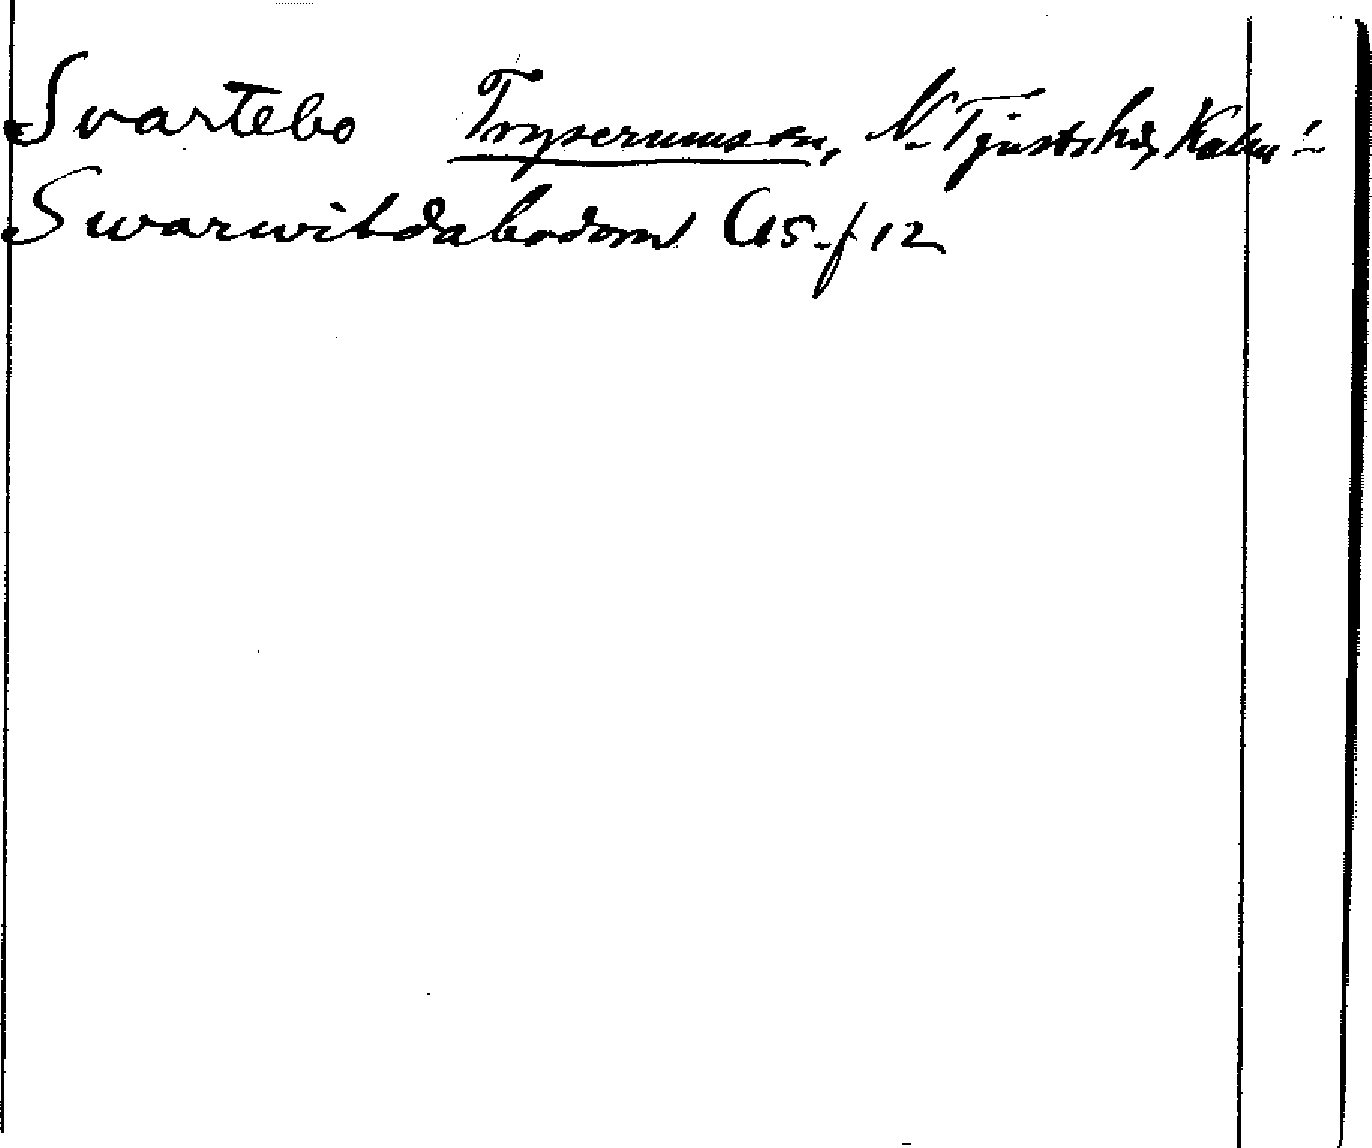 Svartebo Tryserums sn, N. Tjusts hd, Kalm. l.
Swarwitdabodom C 15 f 12